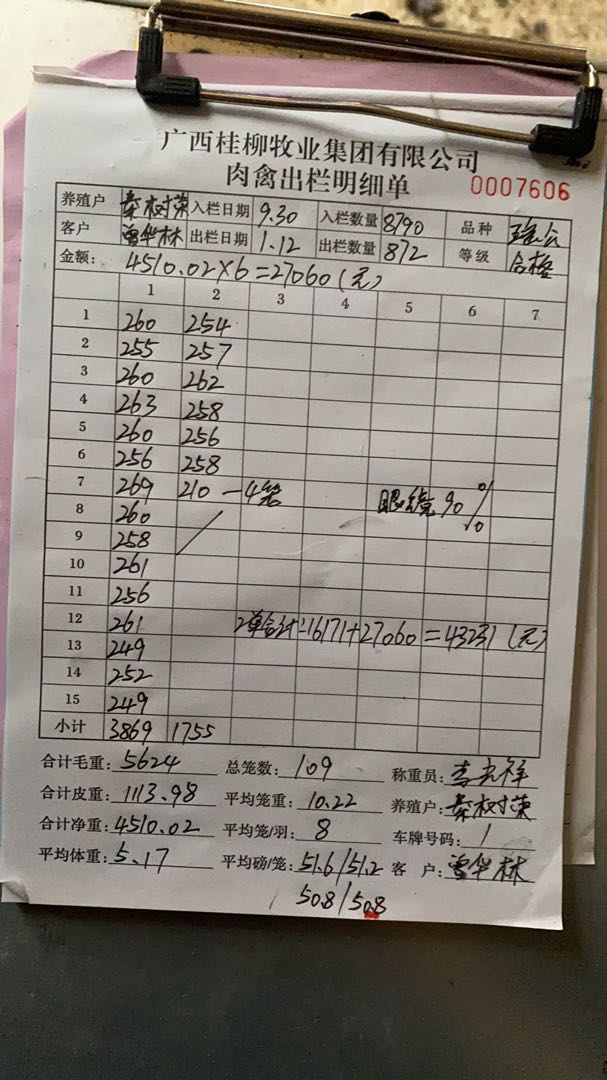 广西桂柳牧业集团有限公司
肉禽出栏明细单 0007606
养殖户 秦树荣 入栏日期 9.30 入栏数量 8790 品种
客户 曾华林 出栏日期 1.12 出栏数量 872 等级 合格
金额: 4510.02×6=27060(元)
1 2 3 4 5 6 7
1 260 254
2 255 257
3 260 262
4 263 258
5 260 256
6 256 258
7 269 210 —4笼 90%
8 260
9 258
10 261
11 256
12 261 2单合计=16171+27060=43231(元)
13 249
14 252
15 249
小计 3869 1755
合计毛重: 5624 总笼数: 109 称重员:
合计皮重: 1113.98 平均笼重: 10.22 养殖户: 秦树荣
合计净重: 4510.02 平均笼/羽: 8 车牌号码: 1
平均体重: 5.17 平均磅/笼: 51.6/51.2 客 户: 曾华林
50.8/50.8